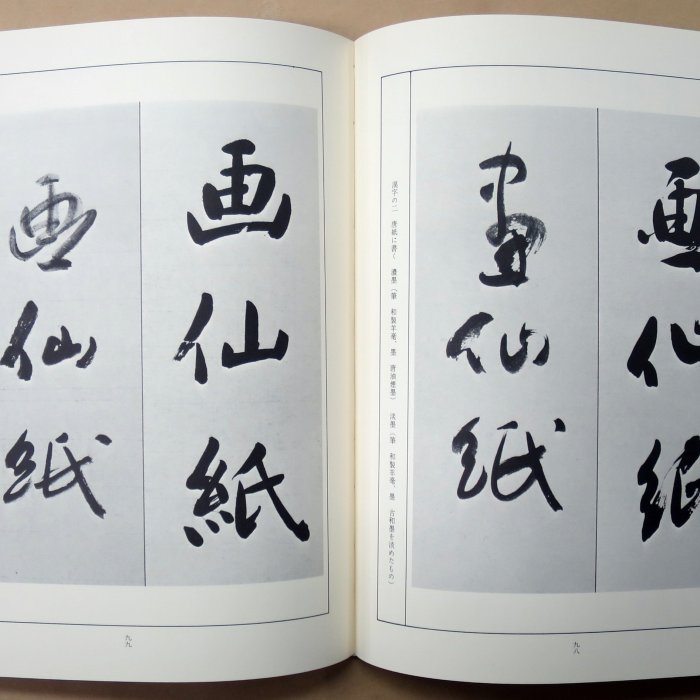 画仙紙
畫仙紙
漢字の二　唐紙に書く　濃墨（筆　和製羊毫、墨　唐油煙墨）　淡墨（筆　和製羊毫、墨　古和墨を淡めたもの）
九八
画仙紙
画仙紙
九九